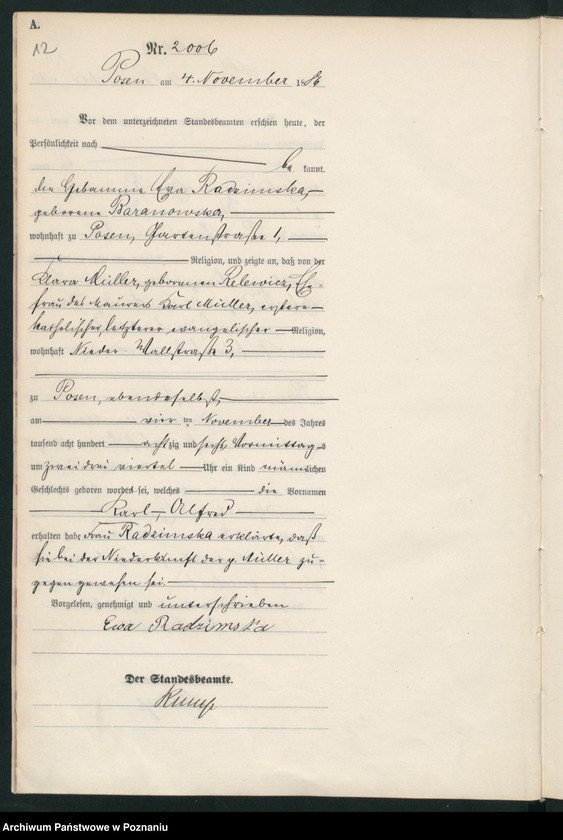 A.
12
Nr. 2006
Posen am 4. November 1886
Vor dem unterzeichneten Standesbeamten erschien heute, der
Persönlichkeit nach
be kannt,
die Hebamme Eva Radzimska,
geborene Baranowska,
wohnhaft zu Posen, Gartenstraße 1,
Religion, und zeigte an, daß von der
Klara Müller, geborenen Relewicz, Ehe-
frau des Maurers Karl Müller, erstere
katholischer, letzterer evangelischer Religion,
wohnhaft Nieder Wallstraße 3,
zu Posen, ebendaselbst,
am vier ten November des Jahres
tausend acht hundert achtzig und sechs Vormittags
um zwei drei viertel Uhr ein Kind männlichen
Geschlechts geboren worden sei, welches die Vornamen
Karl, Alfred
erhalten habe Frau Radzimska erklärte, daß
sie bei der Niederkunft der p. Müller zu-
gegen gewesen sei.
Vorgelesen, genehmigt und unterschrieben
Ewa Radzimska
Der Standesbeamte.
Archiwum Państwowe w Poznaniu